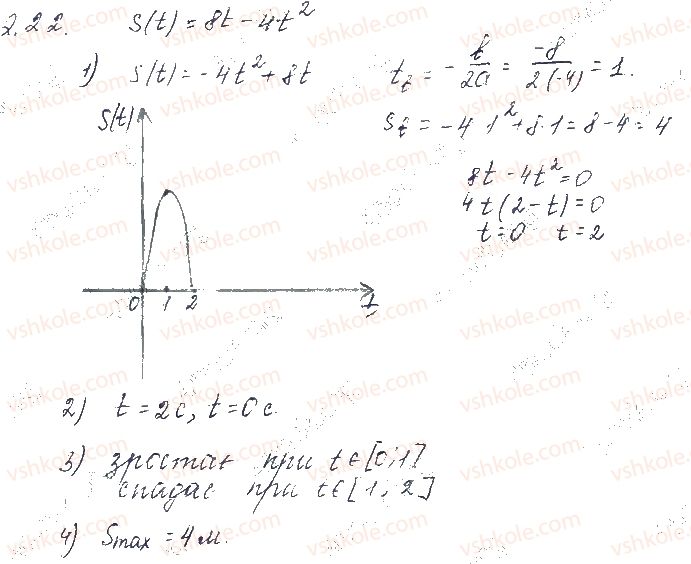 2.22. S(t) = 8t - 4t²
1) S(t) = -4t² + 8t
t_в = - b/2a = -8/2(-4) = 1.
S_в = -4·1² + 8·1 = 8 - 4 = 4
8t - 4t² = 0
4t(2 - t) = 0
t = 0 t = 2
S(t)
0 1 2 t
2) t = 2c, t = 0c.
3) зростає при t∈[0;1]
спадає при t∈[1;2]
4) Smax = 4м.
vshkole.com